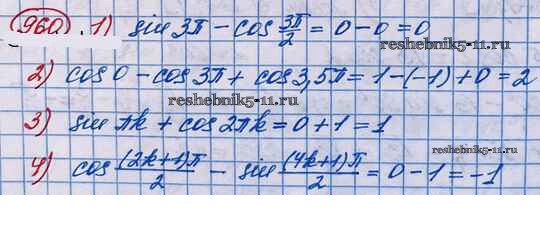 960. 1) sin 3π − cos 3π/2 = 0 − 0 = 0
reshebnik5-11.ru
2) cos 0 − cos 3π + cos 3,5π = 1 − (−1) + 0 = 2
reshebnik5-11.ru
3) sin πk + cos 2πk = 0 + 1 = 1
reshebnik5-11.ru
4) cos (2k+1)π/2 − sin (4k+1)π/2 = 0 − 1 = −1